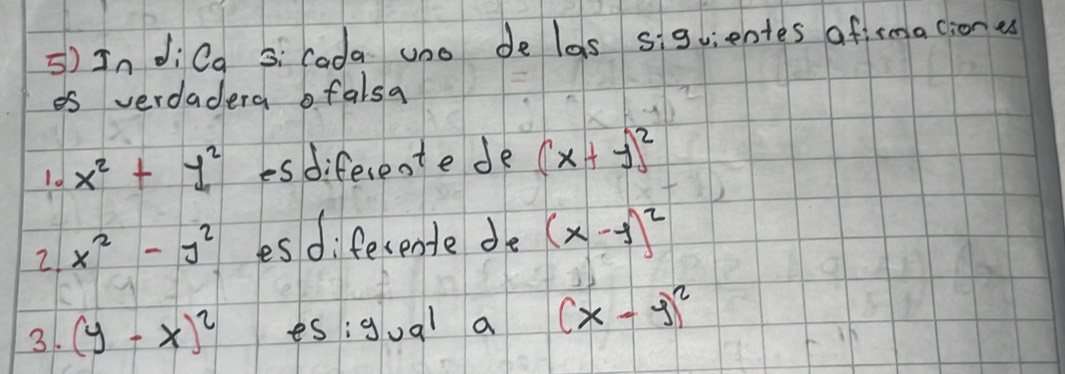 5) Indica si cada uno de las siguientes afirmaciones
es verdadera o falsa
1. x² + y² es diferente de (x + y)²
2. x² - y² es diferente de (x - y)²
3. (y - x)² es igual a (x - y)²